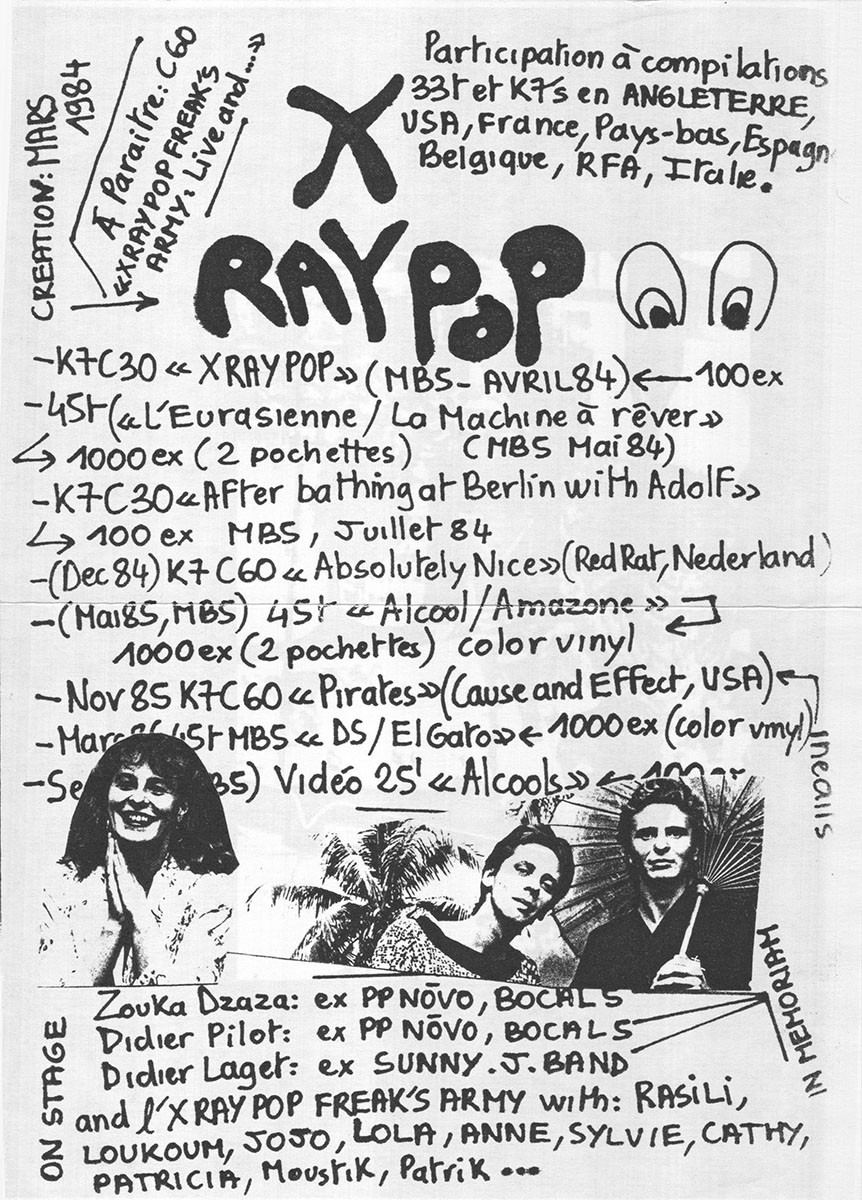 CREATION: MARS
1984
À Paraitre: C60
«XRAY POP FREAK'S
ARMY: Live and...»
Participation à compilations
33t et K7s en ANGLETERRE,
USA, France, Pays-bas, Espagn
Belgique, RFA, Italie.
X
RAY POP
-K7C30 « XRAY POP» (MBS- AVRIL84) ← 100ex
-45t («L'Eurasienne / La Machine à rêver»
↳ 1000ex (2 pochettes) (MBS Mai 84)
-K7C30 «After bathing at Berlin with Adolf»
↳ 100 ex MBS, Juillet 84
-(Dec 84) K7 C60 « Absolutely Nice» (Red Rat, Nederland)
-(Mai85, MBS) 45t « Alcool/Amazone »
1000ex (2 pochettes) color vinyl
- Nov 85 K7C60 «Pirates» (Cause and Effect, USA)
-Mars 86 45t MBS « DS / El Gato» ← 1000ex (color vinyl)
-Se BS) Vidéo 25' «Alcools» ← 100ex
Zouka Dzaza: ex PP NŌVO, BOCAL5
Didier Pilot: ex PP NŌVO, BOCAL5
Didier Laget: ex SUNNY.J.BAND
IN MEMORIAM
ON STAGE
and l'XRAY POP FREAK'S ARMY with: RASiLi,
LOUKOUM, JOJO, LOLA, ANNE, SYLVIE, CATHY,
PATRICIA, Moustik, Patrik ...